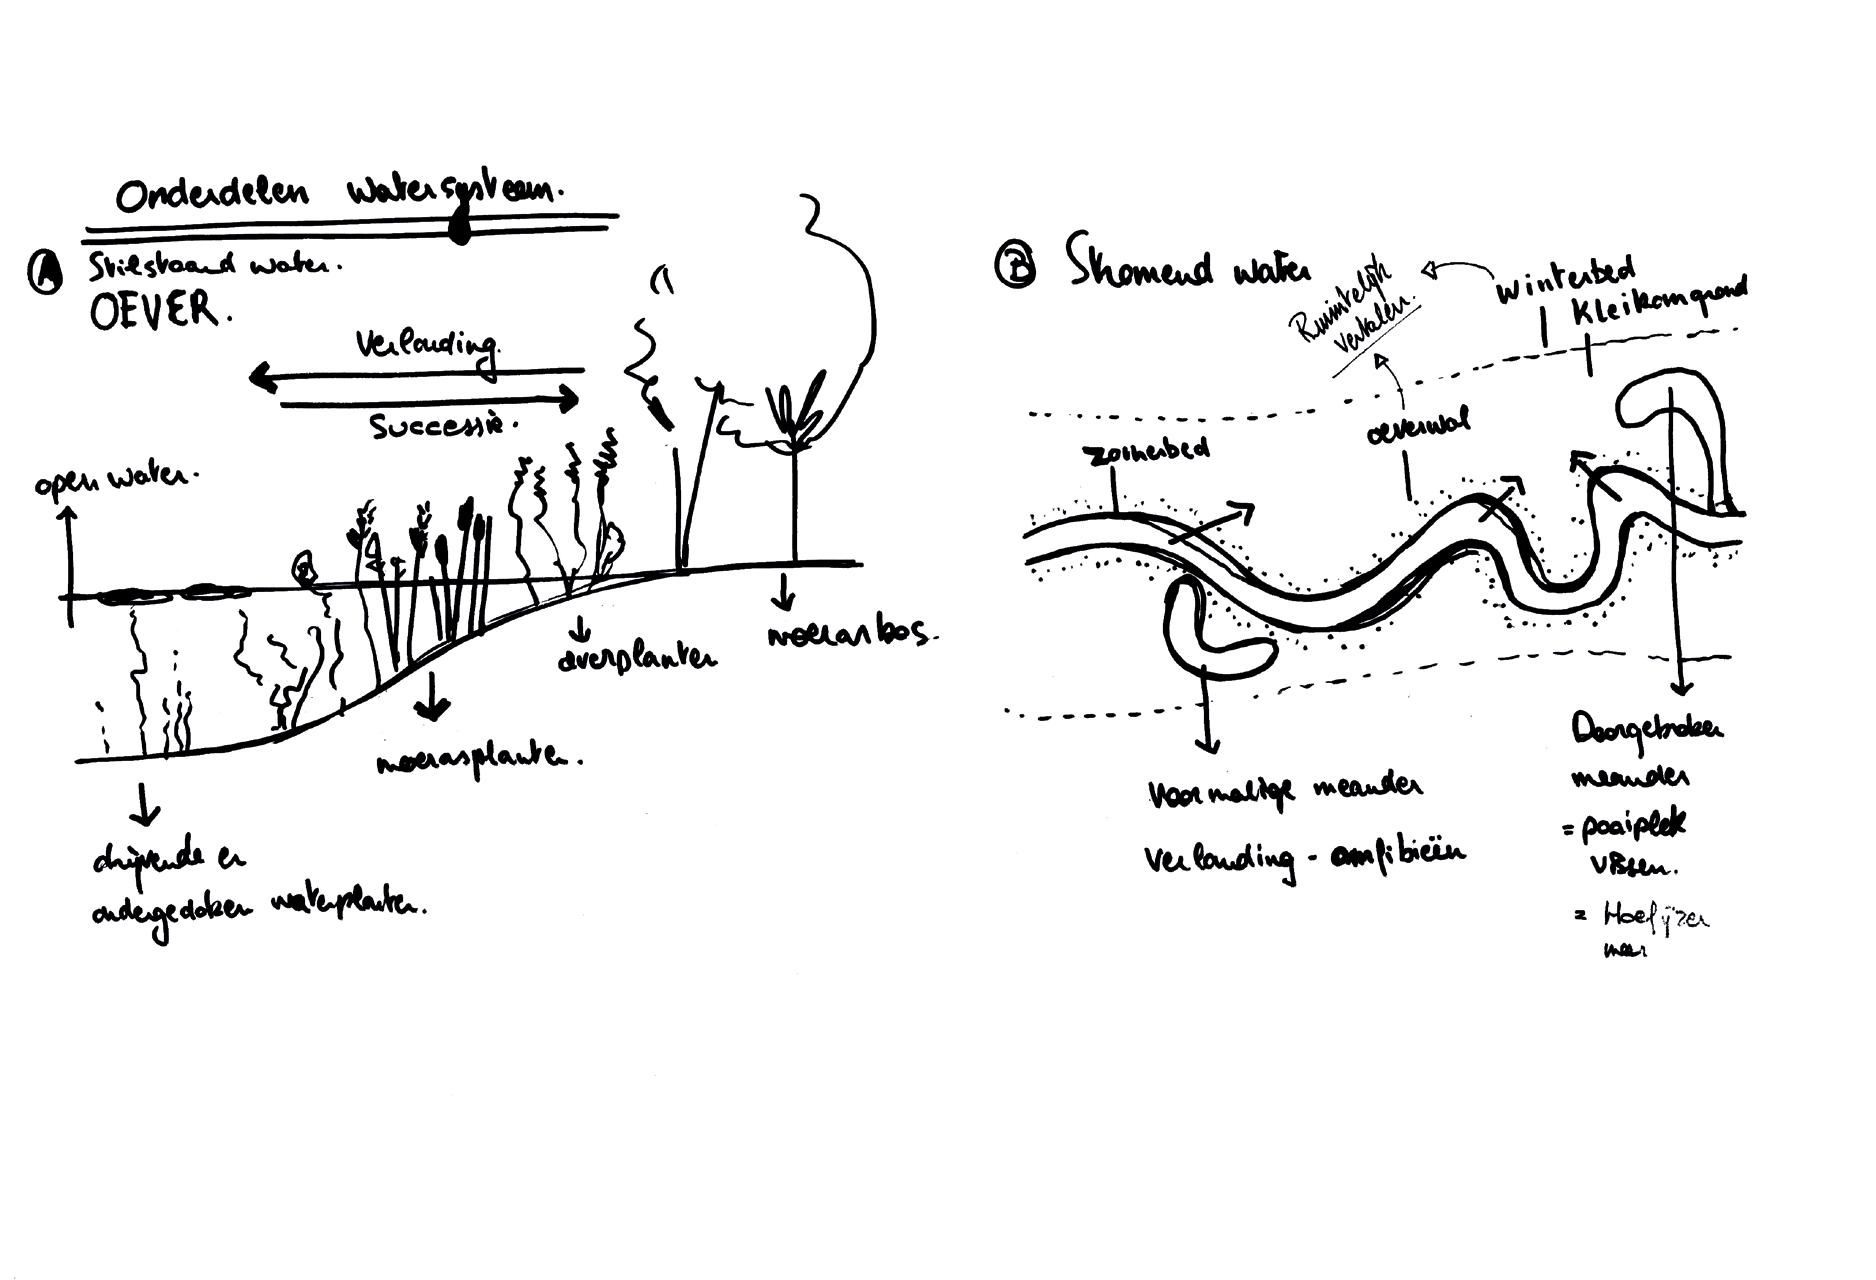 Onderdelen watersysteem.
A Stilstaand water.
OEVER.
Verlanding.
Successie.
open water.
moerasbos.
oeverplanten
moerasplanten.
drijvende en
ondergedoken waterplanten.
B Stromend water
Ruimtelijk
vertalen.
Winterbed
Kleikomgrond
oeverwal
zomerbed
Voormalige meander
verlanding - amfibieën
Doorgebroken
meander
= paaiplek
vissen.
= Hoefijzer
meer